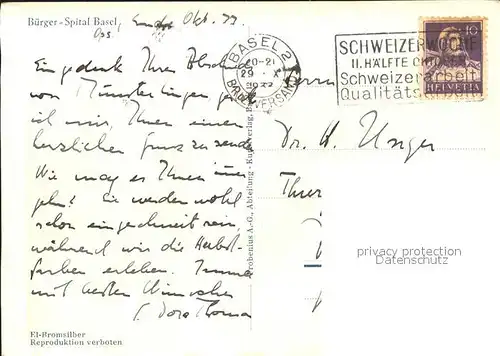 Bürger-Spital Basel, Ende Okt. 33.
Eingedenk Ihres Abschieds
von Münsterlingen
ich mir, Ihnen einen
herzlichen Gruss zu senden
Wie mag es Ihnen immer
gehn? Sie werden wohl
schon eingeschneit sein,
während wir die Herbst-
farben erleben. Immer
mit besten Wünschen
Dora Thomas
El-Bromsilber
Reproduktion verboten
Frobenius A.-G., Abteilung - Kunstverlag, B
BASEL 2
20-21
29. X.
BRIEFVERSAND
SCHWEIZERWOCHE
II. HÄLFTE OKTOBER
Schweizerarbeit
Qualitätsarbeit
10
HELVETIA
Herrn
Dr. H. Unger
Thur
privacy protection
Datenschutz